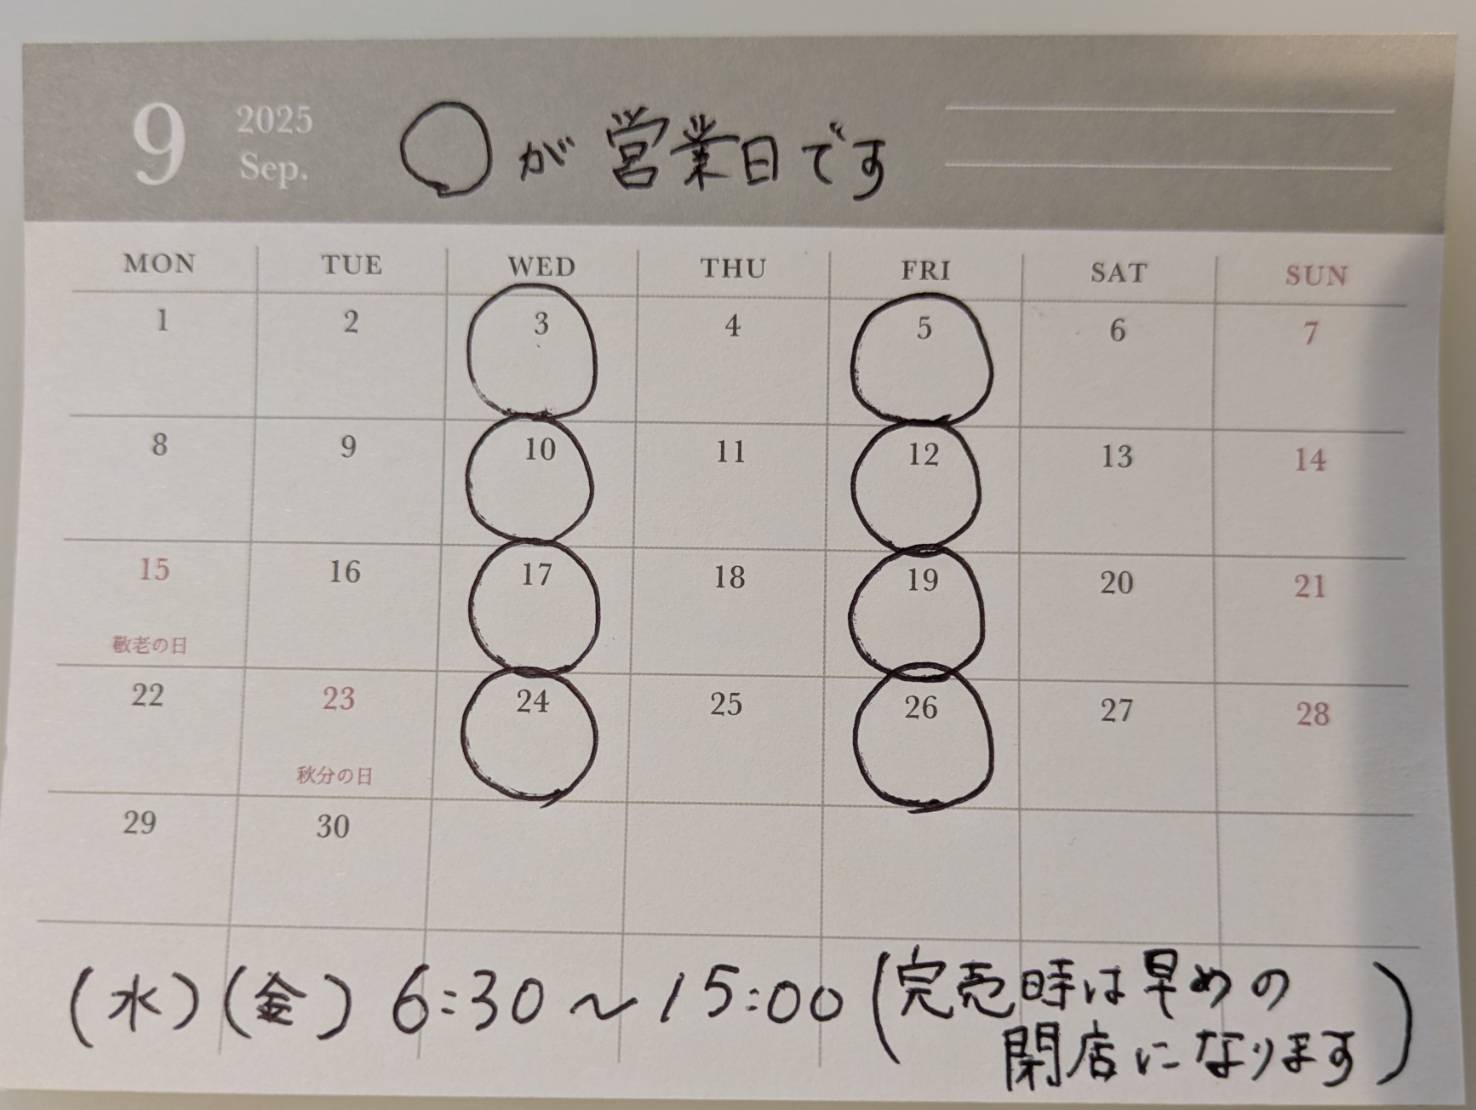 9 2025 Sep. ○が営業日です
MON TUE WED THU FRI SAT SUN
1 2 3 4 5 6 7
8 9 10 11 12 13 14
15 16 17 18 19 20 21
敬老の日
22 23 24 25 26 27 28
秋分の日
29 30
(水)(金) 6:30〜15:00 (完売時は早めの
閉店になります)